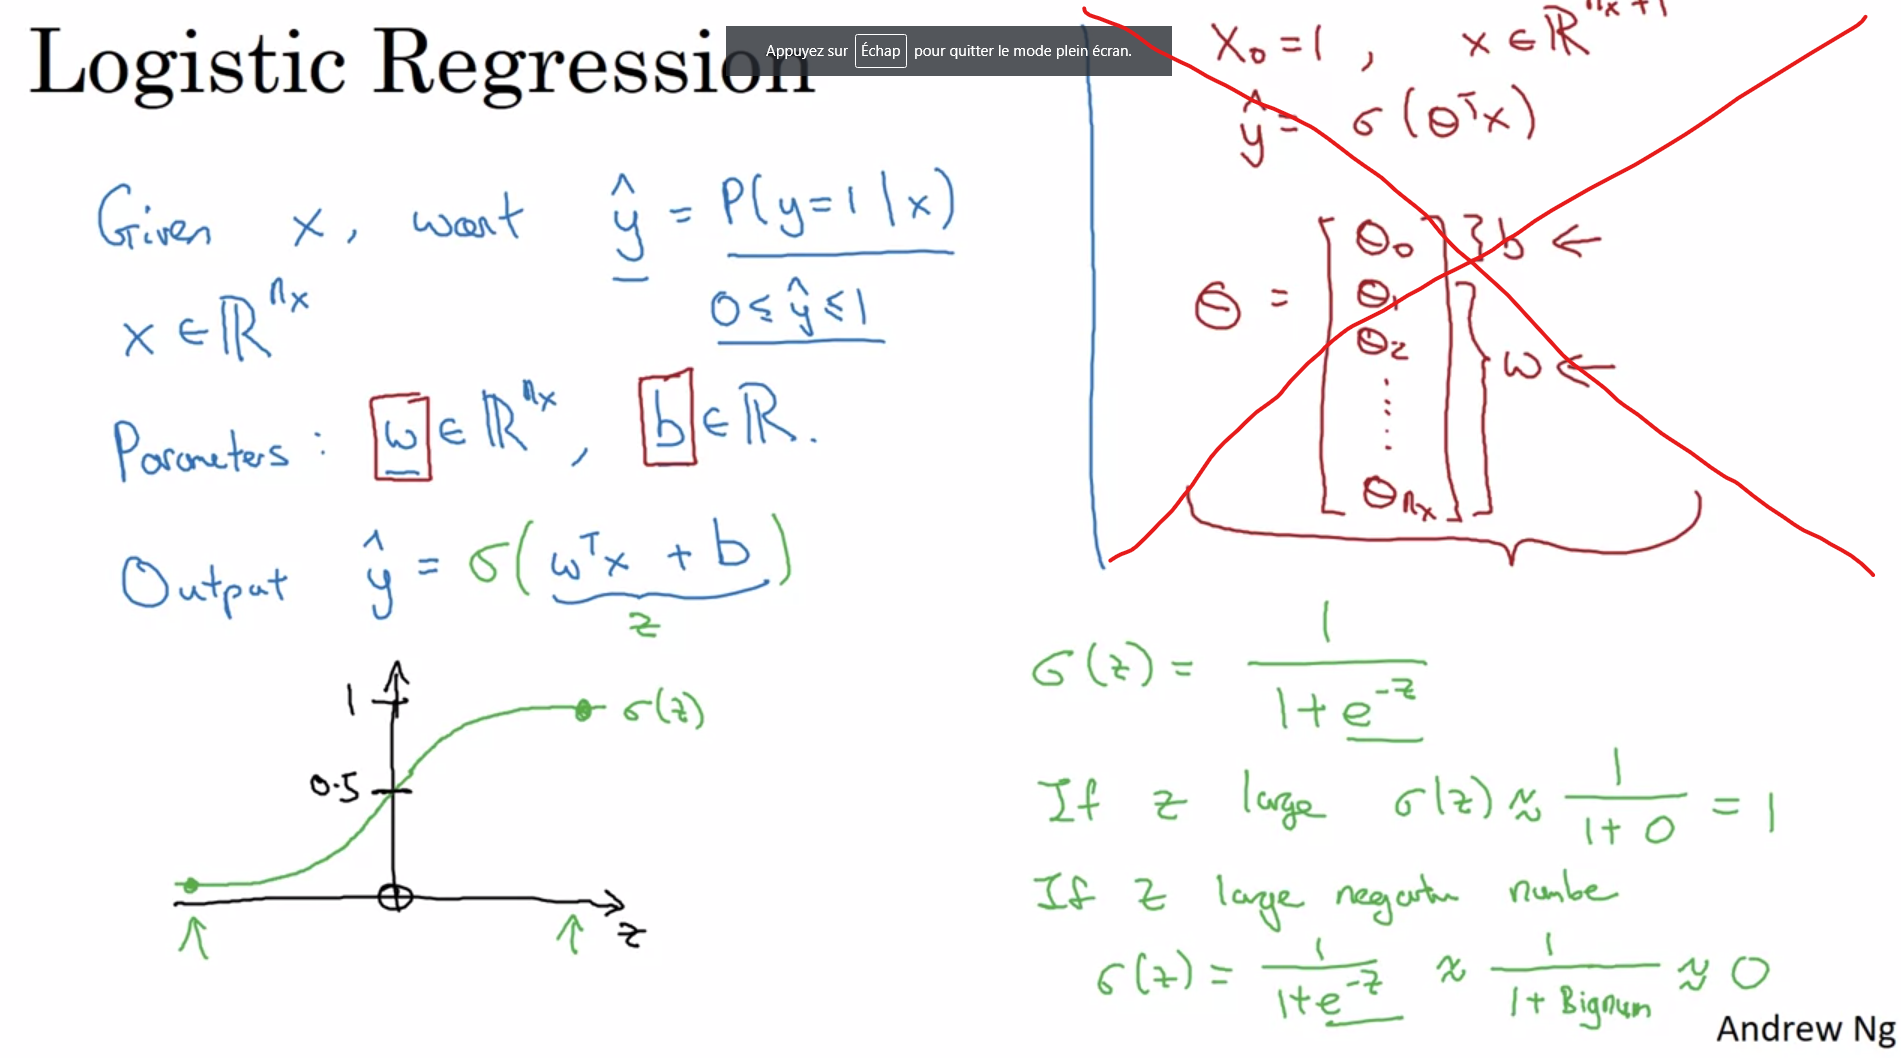 Logistic Regression
Appuyez sur Échap pour quitter le mode plein écran.
Given x, want ŷ = P(y=1|x)
x ∈ ℝ^nx
0 ≤ ŷ ≤ 1
Parameters: w ∈ ℝ^nx, b ∈ ℝ.
Output ŷ = σ(wᵀx + b)
z
1
0.5
σ(z)
z
x₀ = 1, x ∈ ℝ^nx+1
ŷ = σ(θᵀx)
θ = [θ₀ θ₁ θ₂ ⋮ θnx]
} b ←
} w ←
σ(z) = 1/(1+e^-z)
If z large σ(z) ≈ 1/(1+0) = 1
If z large negative numbe
σ(z) = 1/(1+e^-z) ≈ 1/(1+Bignum) ≈ 0
Andrew Ng